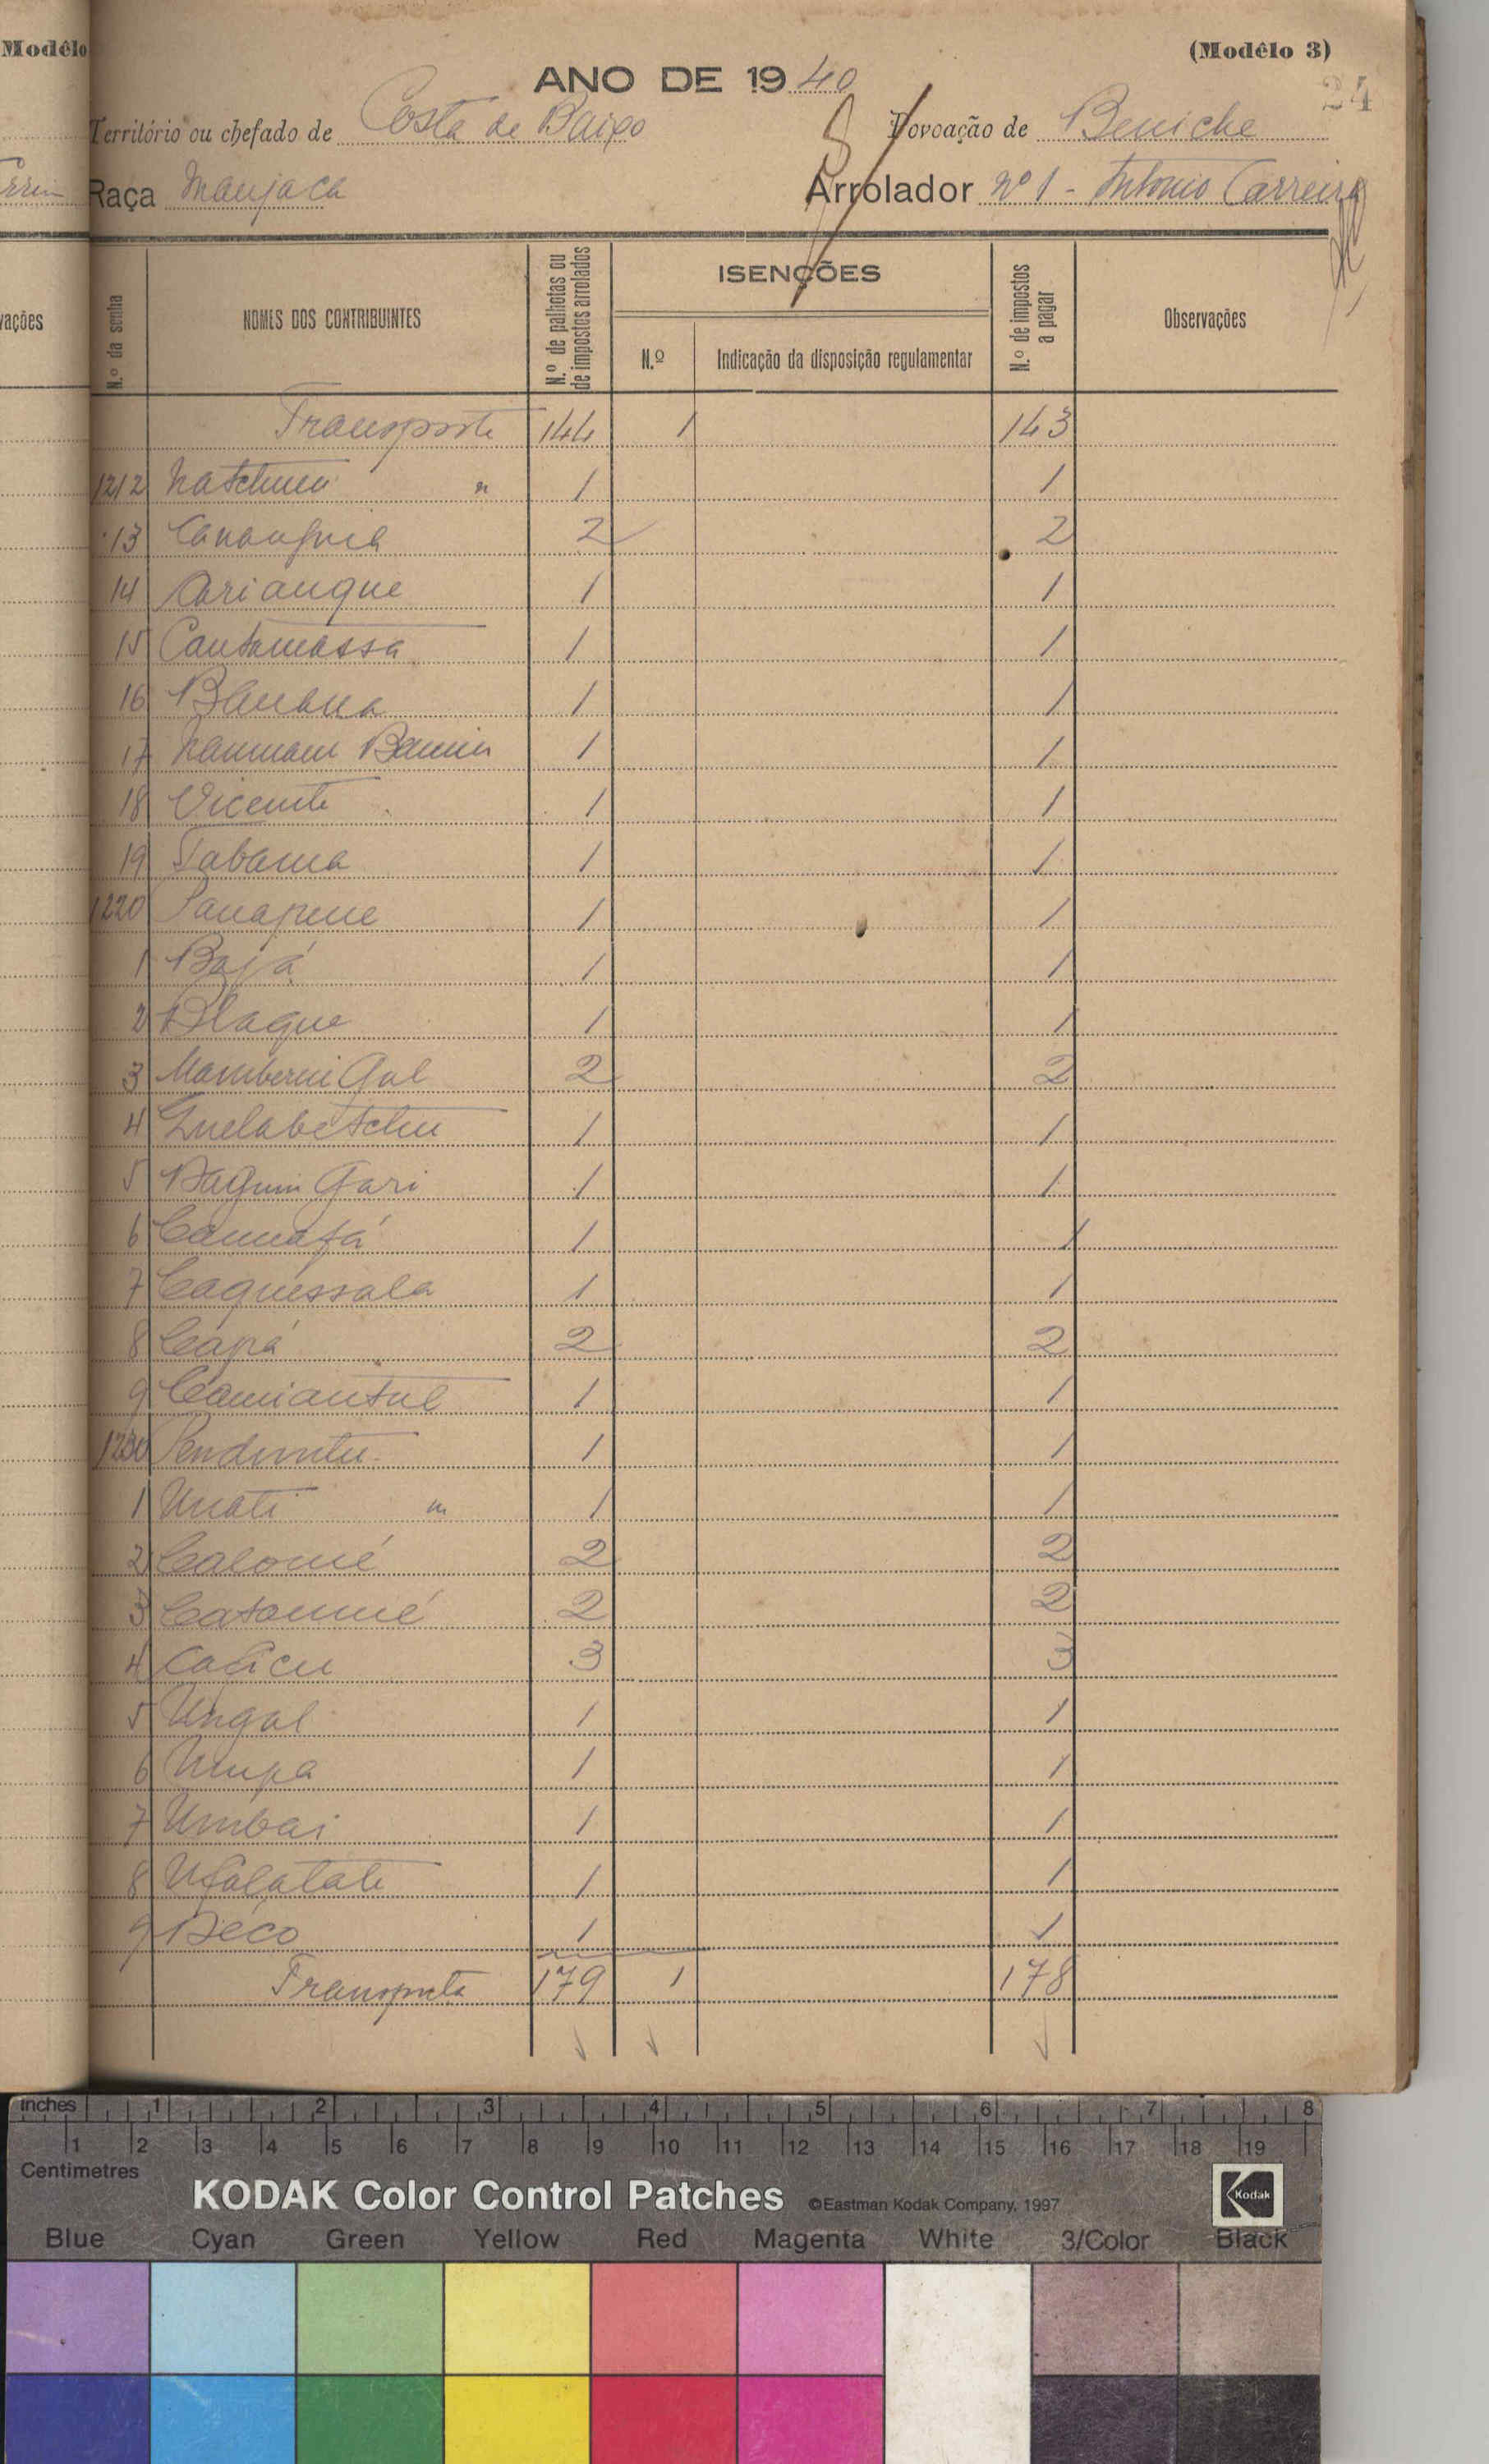 Modêlo
(Modêlo 3)
24
ANO DE 1940
Território ou chefado de Costa de Baixo
Povoação de Beniche
Raça Manjaca
Arrolador nº 1 - Antonio Carreira
vações
N.º da senha
NOMES DOS CONTRIBUINTES
N.º de palhotas ou de impostos arrolados
ISENÇÕES
N.º
Indicação da disposição regulamentar
N.º de impostos a pagar
Observações
Transporte 144 1 143
1212 1 1
13 2 2
14 Ariangue 1 1
15 Cantamassa 1 1
16 Banana 1 1
17 1 1
18 Vicente 1 1
19 Tabama 1 1
1220 1 1
1 Bajá 1 1
2 Blaque 1 1
3 Gal 2 2
4 1 1
5 Gari 1 1
6 1 1
7 Caquessala 1 1
8 Capá 2 2
9 Camiantul 1 1
1230 1 1
1 Unati 1 1
2 Calomé 2 2
3 2 2
4 Calicu 3 3
5 Ungal 1 1
6 1 1
7 Umbai 1 1
8 Ufalatate 1 1
9 Deco 1 1
Transporte 179 1 178
Inches 1 2 3 4 5 6 7 8
1 2 3 4 5 6 7 8 9 10 11 12 13 14 15 16 17 18 19
Centimetres
KODAK Color Control Patches ©Eastman Kodak Company, 1997 Kodak
Blue Cyan Green Yellow Red Magenta White 3/Color Black